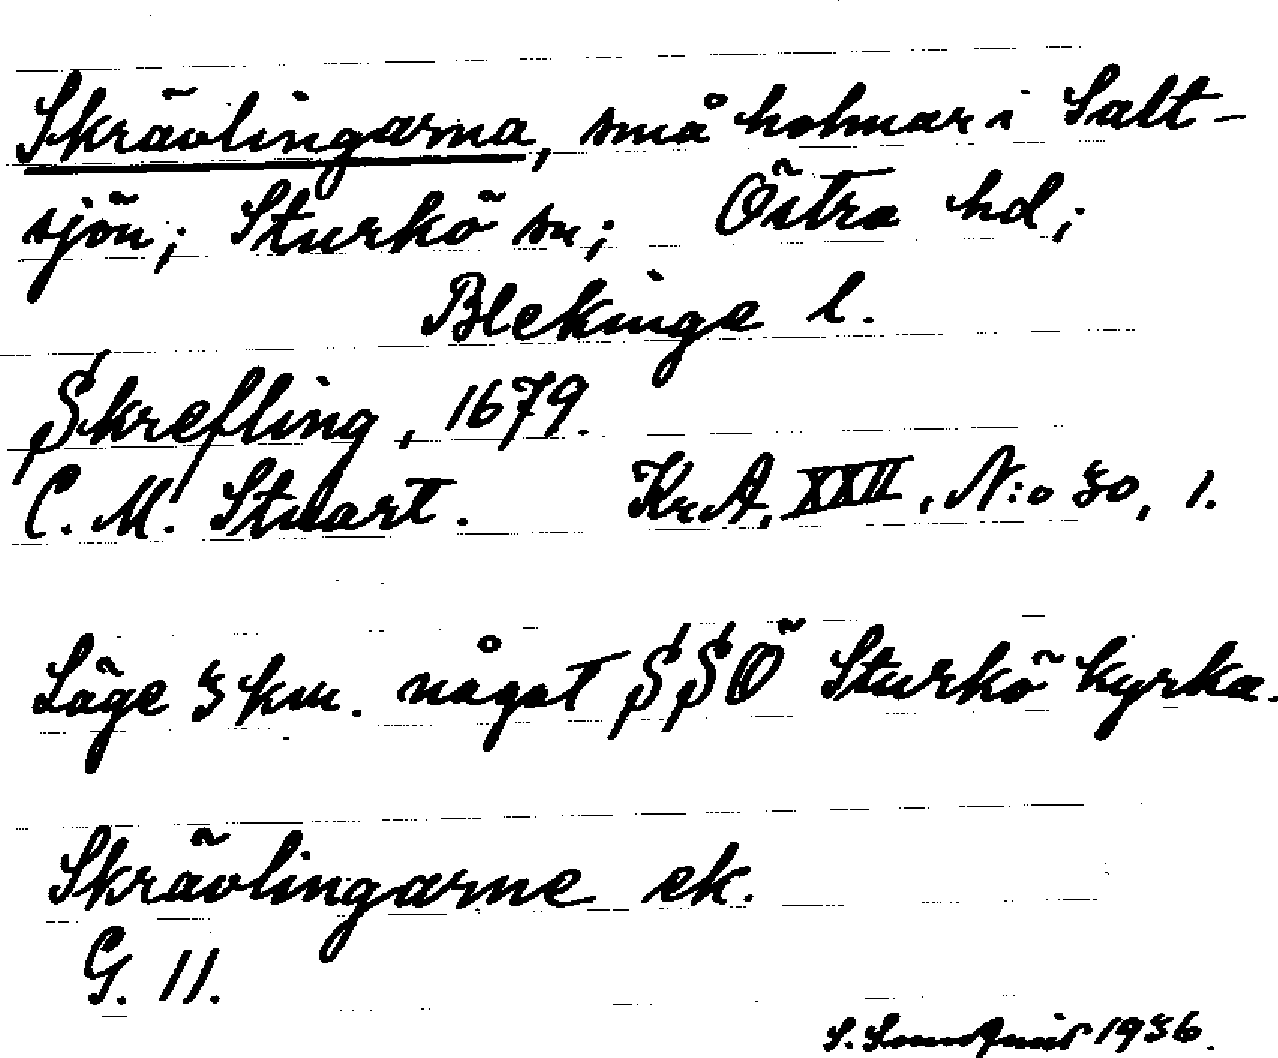 Skrävlingarna, små holmar i Salt-
sjön; Sturkö sn; Östra hd;
Blekinge l.
Skrefling, 1679.
C. M. Stuart. Kr.A. XXII, N:o 30, 1.
Läge 3 km. något SSÖ Sturkö kyrka.
Skrävlingarne ek.
G. 11.
S. 1936.